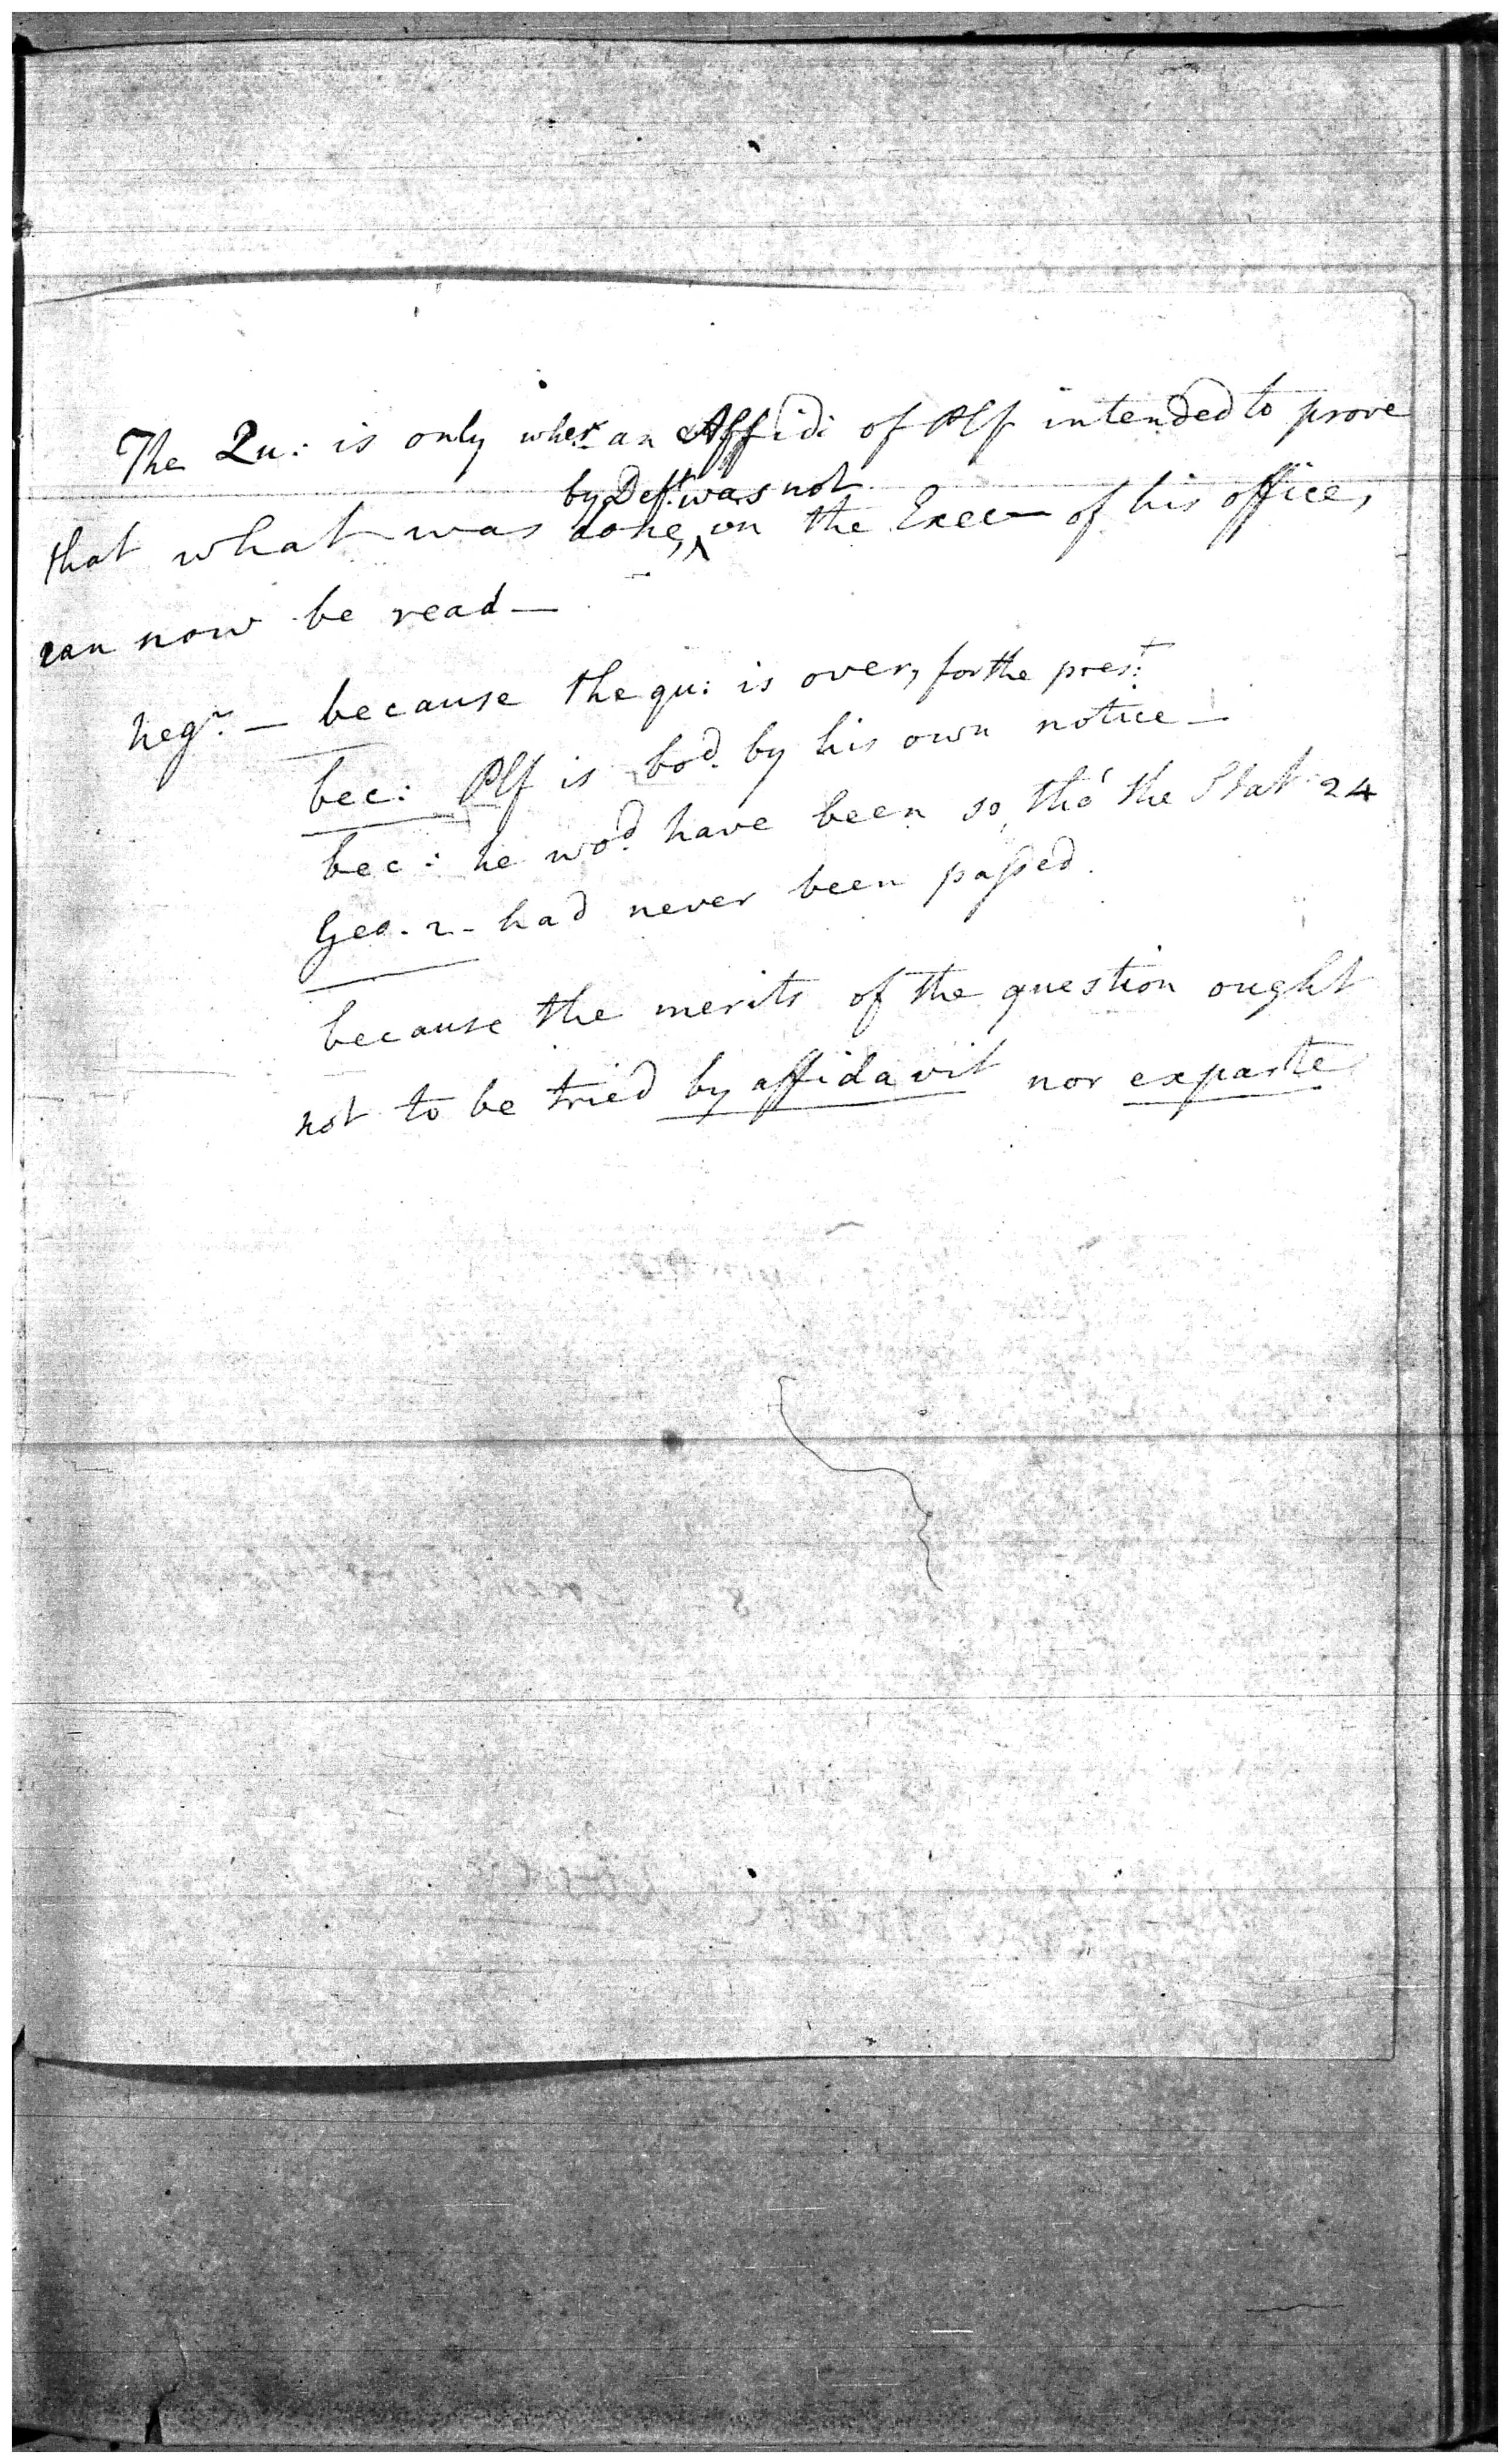 The Qu: is only wher an Affidt of Plf intended to prove
by Deft was not
that what was done, ^ on the Exec— of his office,
can now be read—
neg.r — because the qu: is over, for the pres.t
bec: Plf is bo.d by his own notice—
bec: he wo.d have been so, tho' the Stat: 24
Geo. 2 - had never been passed.
because the merits of the question ought
not to be tried by affidavit nor exparte